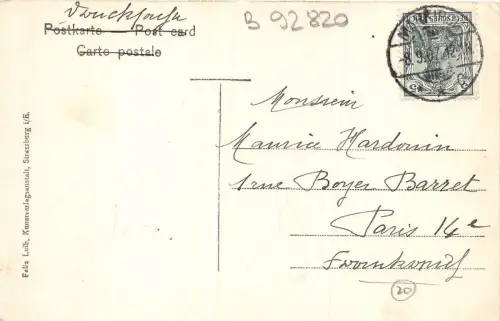 Drucksache
B 92820
Postkarte — Post card
Carte postale
Monsieur
Maurice Hardouin
1 rue Boyer Barret
Paris 14e
Frankreich
20
Felix Luib, Kunstverlagsanstalt, Strassburg i/E.